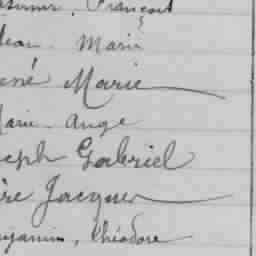 François
Marie
ené Marie
Marie Ange
seph Gabriel
re Jacques
njamin, Théodore